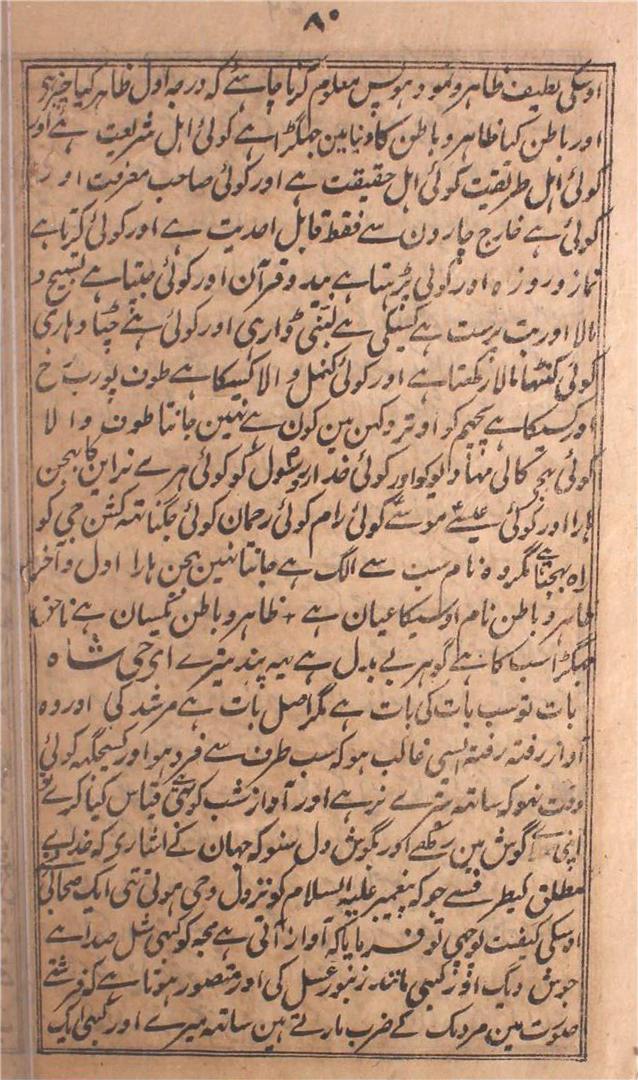 ۸۰
اوسکی لطیف ظاہر و نمود ہو پس معلوم کرنا چاہئے کہ درجہ اول ظاہر کیا چیز ہی
اور باطن کیا ظاہر و باطن کا دنیا مین جہگڑا ہے کوئی اہل شریعت ہے اور
کوئی اہل طریقت کوئی اہل حقیقت ہے اور کوئی صاحب معرفت اور
کوئی ہے خارج چارون سے فقط قابل احدیت ہے اور کوئی کرتا ہے
نماز و روزہ اور کوئی پڑہتا ہے بید و قرآن اور کوئی جپتا ہے تسبیح و
مالا اور بت پرست ہے کسیکی ہے لنبی ڈواڑہی اور کوئی ہے جٹا دہاری
کوئی کنٹہا مالا رکہتا ہے اور کوئی کنہل والا کسیکا ہے طوف پورب رخ
اور کسیکا ہے پچہم کو اوتر دکہن مین کون ہے نہین جانتا طوف والا
کوئی بہجے کالی مہادیو کو اور کوئی خدا رسول کو کوئی ہرے نراین کا بہجن
ہارا اور کوئی عیسے موسے کوئی رام کوئی رحمان کوئی جگناتہہ کشن جی کو
راہ بہجتا ہے مگر وہ نام سب سے الگ ہے جانتا نہین بہجن ہارا اول و آخر
ظاہر و باطن نام اوسیکا عیان ہے ظاہر و باطن یکسان ہے ناحق
جہگڑا سب کا ہے گوہر بے بدل ہے یہہ پند میرے ای جی شاہ
بات تو سب بات کی بات ہے مگر اصل بات ہے مرشد کی اور وہ
آواز رفتہ رفتہ ایسی غالب ہو کہ سب طرف سے فرد ہو اور کسیجگہہ کوئی
وقت نہو کہ ساتہہ میرے نرہے اور آواز شب کو ہی قیاس کیا کرے
اپنی گوش مین رکہے اور بگوش دل سنو کہ جہان کے اشاری کہ خدای
مطلق کیطرف سے جو کہ پیغمبر علیہ السلام کو نزول وحی ہوئی تہی ایک صحابی
اوسکی کیفیت پوچہی تو فرمایا کہ آواز آتی ہے مجہہ کو کبہی مثل صداے
جوش دیگ اور کبہی مانند زنبور عسل کی اور متصور ہوتا ہے کہ فرشتے
صورت مین مردمک کے ضرب مارتے ہین ساتہہ میرے اور کبہی ایک